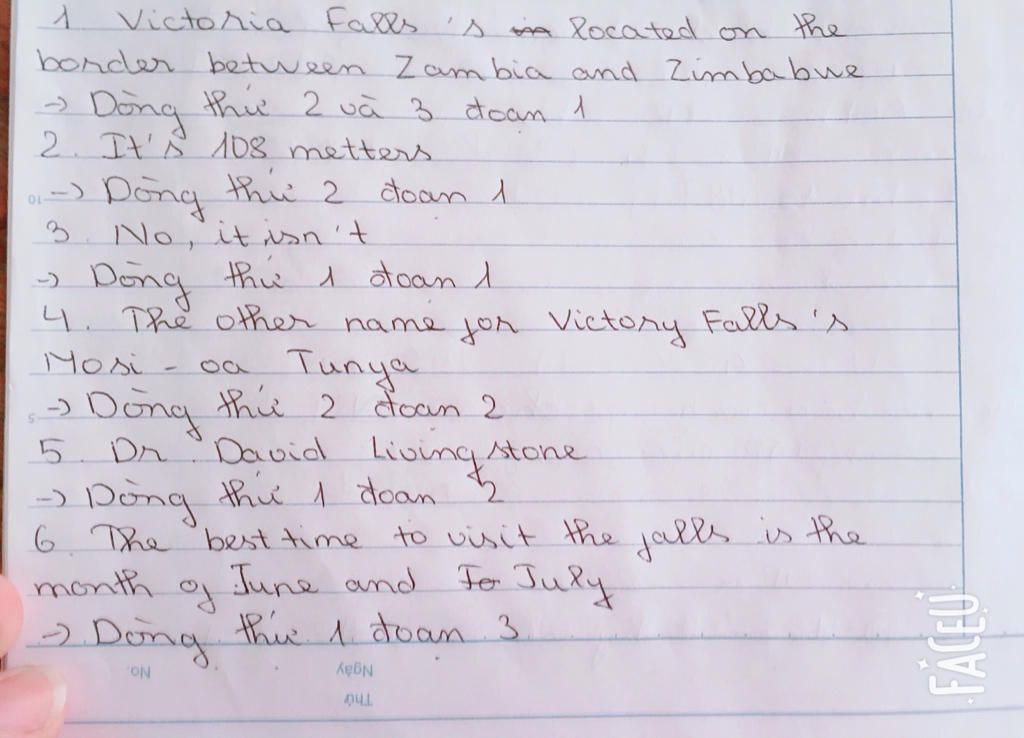 1 Victoria Falls 's in located on the
border between Zambia and Zimbabwe
-> Dòng thứ 2 và 3 đoan 1
2. It's 108 metters
-> Dòng thứ 2 đoan 1
3. No, it isn't
-> Dòng thứ 1 đoan 1
4. The other name for Victory Falls's
Mosi - oa Tunya
-> Dòng thứ 2 đoan 2
5. Dr. David Livingstone
-> Dòng thứ 1 đoan 2
6 The best time to visit the falls is the
month of June and Jo July
-> Dòng thứ 1 đoan 3
No.
Ngày
Thứ
10
5
FACEU